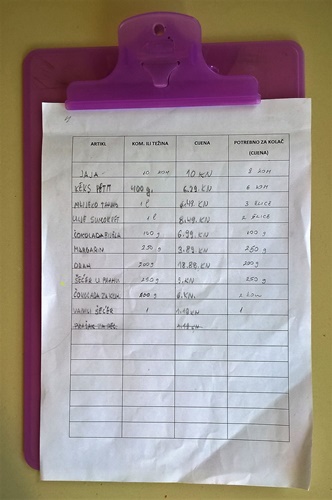 ARTIKL KOM. ILI TEŽINA CIJENA POTREBNO ZA KOLAČ (CIJENA)
JAJA 10 KOM 10 KN 2 KOM
KEKS PETIT 400 g. 6.79. KN 6 KOM
1 l 6.49. KN 3 ŽLICE
ULJE SUNCOKRET 1 l 8.49. KN 2 ŽLICE
ČOKOLADA BIJELA 100 g 6.99. KN 100 g
MARGARIN 250 g 3.89. KN 250 g
ORAH 200 g 18.89. KN 200 g
ŠEĆER U PRAHU 250 g KN 250 g
ČOKOLADA ZA KUH. 200 g KN.
VANILI ŠEĆER 1 1.19 KN 1
PRAŠAK ZA PEC. 1.19 KN